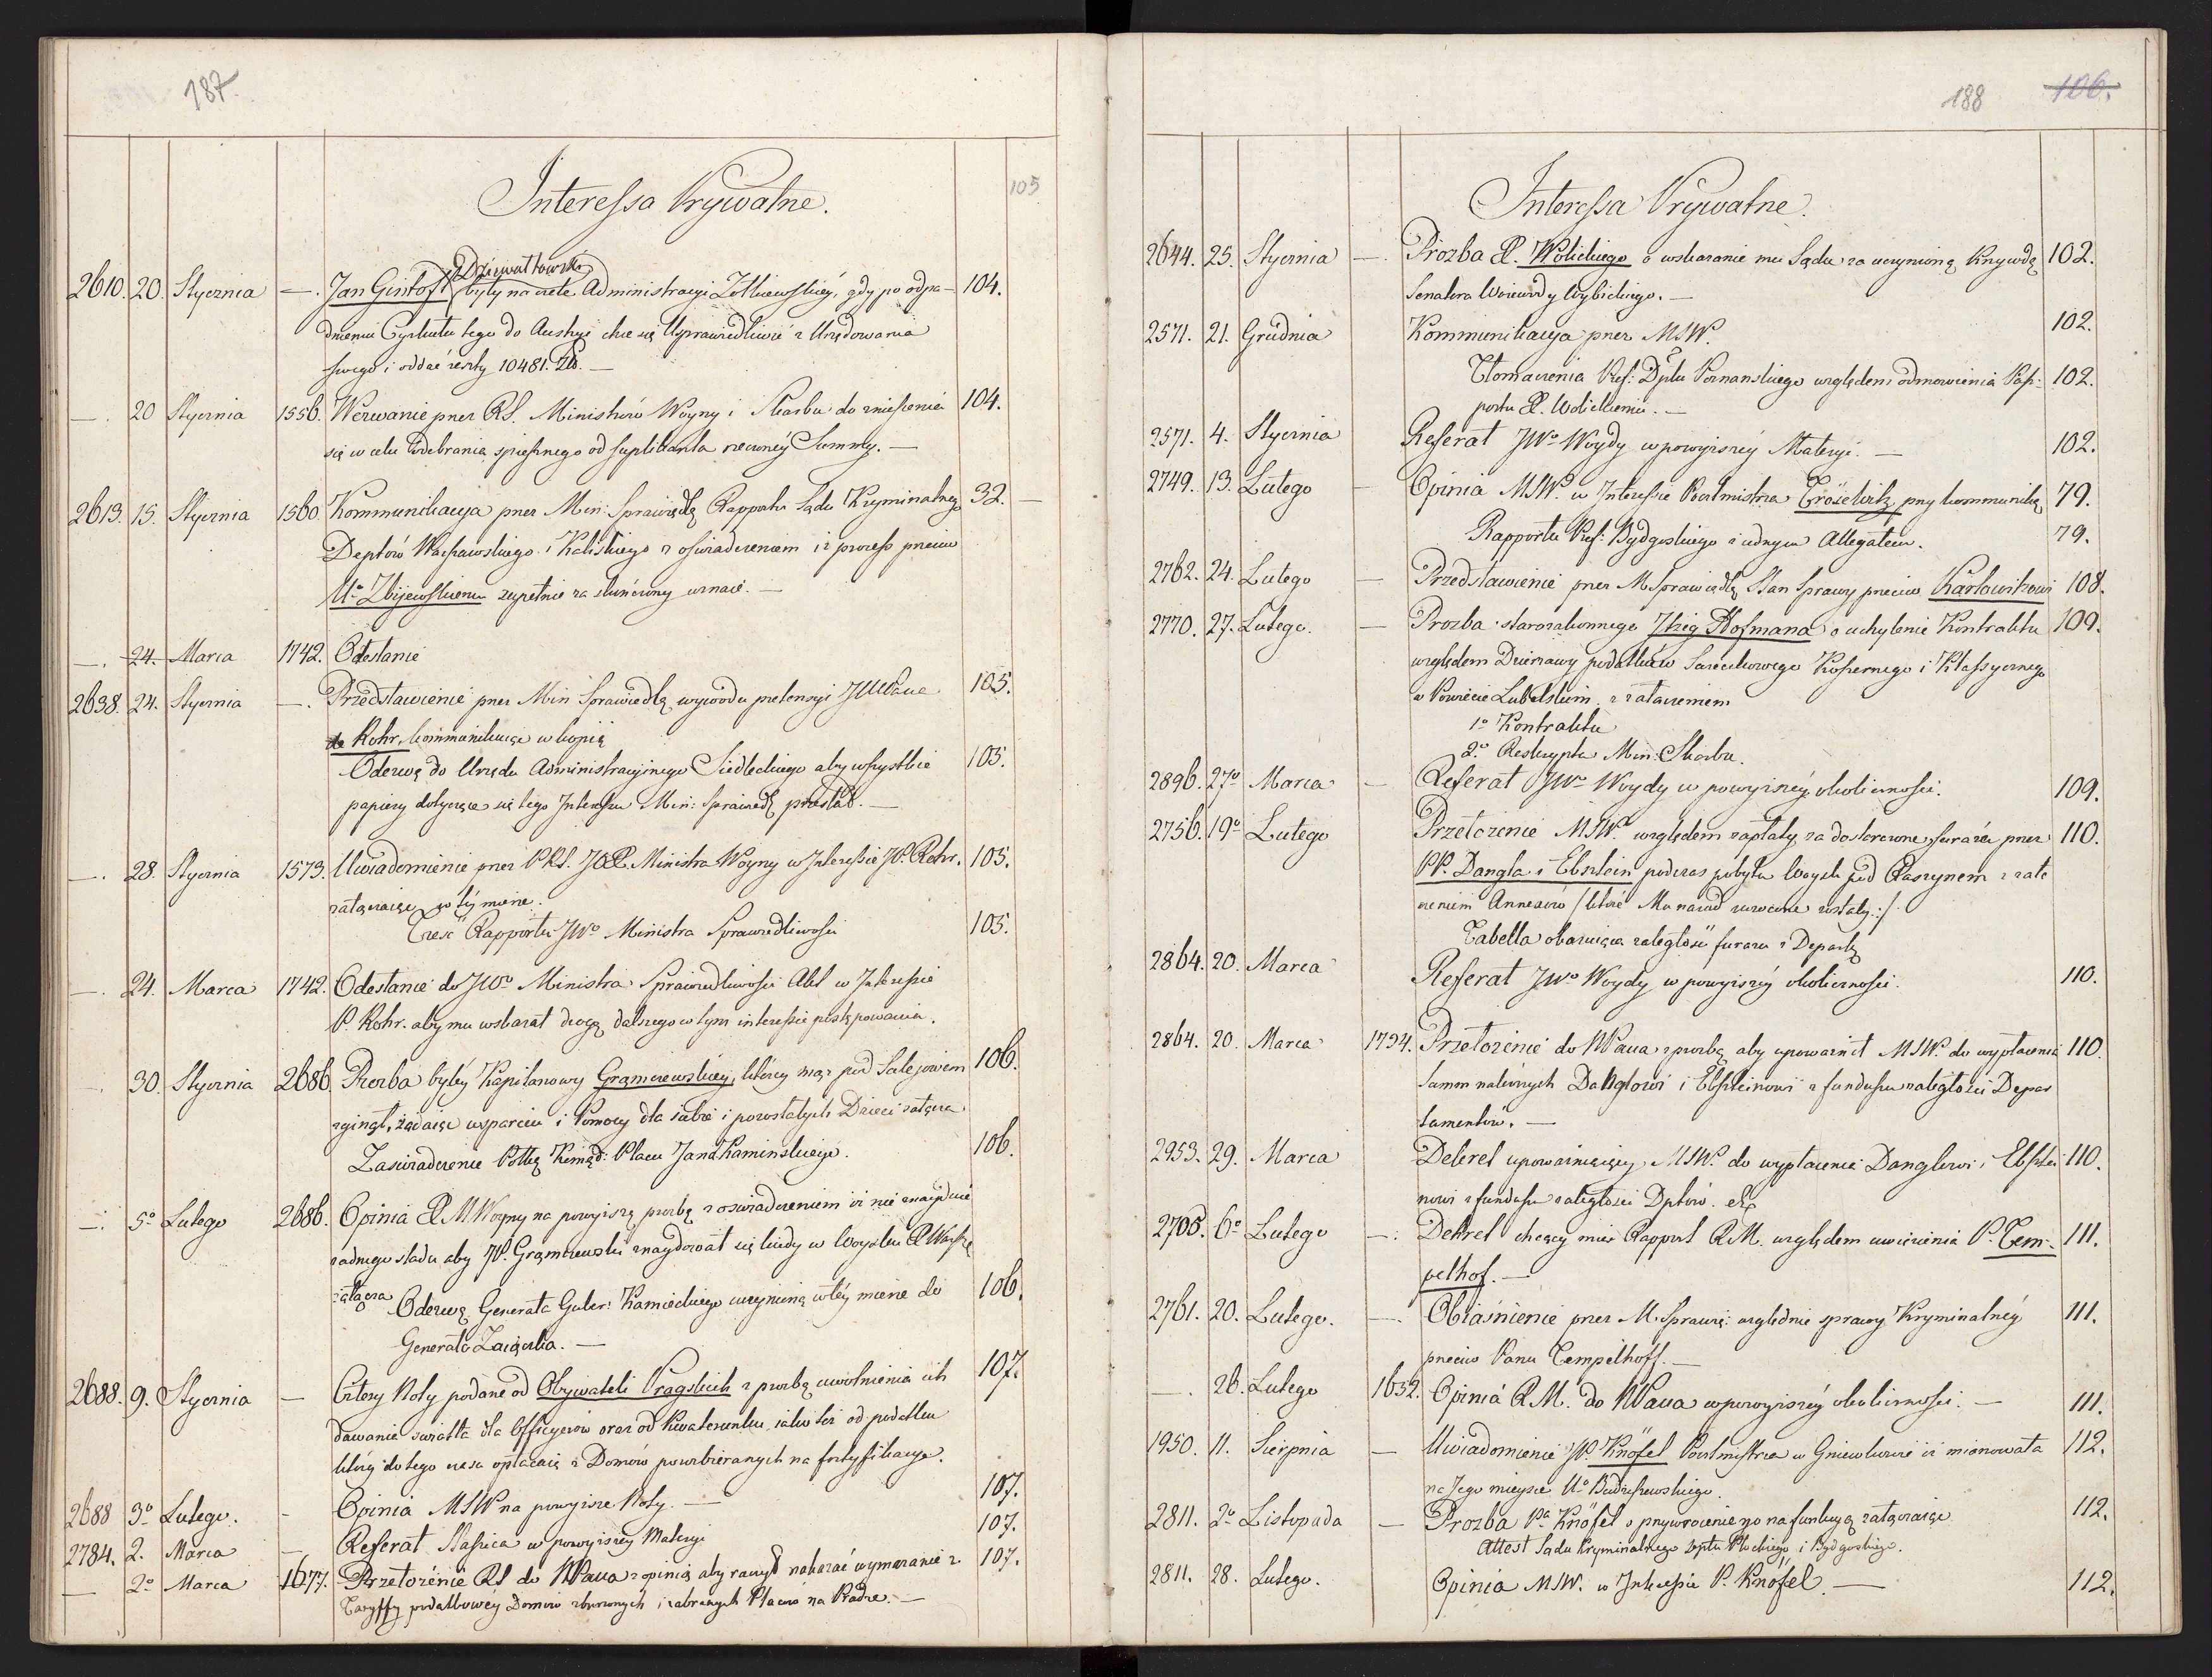 187.
105
Interessa Prywatne.
Dziewałtowski
2610. 20. Stycznia —. Jan Gintoft były na czele Administracyi Zołkiewskiey, gdy po odpa- 104.
dnieniu Cyrkułu tego do Austryi chce się Usprawiedliwić z Urzędowania
swego i oddać reszty 10481. Zł. —
—. 20 Stycznia 1556. Wezwanie przez RS. Ministrów Woyny i Skarbu do zniesienia 104.
się w celu Odebrania spiesznego od suplikanta rzeczonéy Summy. —
2613. 15. Stycznia 1560. Kommunikacya przez Min: Sprawiedlą Rapportu Sądu Kryminalnego 32. —
Deptów Warszawskiego i Kaliskiego z oświadczeniem iż process przeciw
Uo. Zbijewskiemu zupełnie za skończony uznaie. —
—. 24. Marca 1742. Odesłanie
2638. 24. Stycznia —. Przedstawienie przez Min Sprawiedlą wywodu pretensyi JWPana 105.
de Rohr, kommunikuiąc w kopią
Odezwę do Urzędu Administracyjnego Siedleckiego aby wszystkie 105.
papiery dotyczące się tego Interessu Min: Sprawiedł przesłał. —
—. 28. Stycznia 1573. Uwiadomienie przez PRS. JOX. Ministra Woyny w Interessie JP. Rohr. 105.
załączaiąc w téy mierze.
Treść Rapportu JWo Ministra Sprawiedliwości 105.
—. 24. Marca 1742. Odesłanie do JWo Ministra Sprawiedliwości Akt w Interessie
P. Rohr. aby mu wskazał drogę dalszego w tym interessie postępowania.
—. 30. Stycznia 2686. Prozba byłéy Kapitanowy Grąmczewskiéy, któréy mąż pod Salejowem 106.
zginął, żądaiąc wsparcia i Pomocy dla siebie i pozostałych Dzieci załącza
Zaświadczenie Półką Komęd: Placu Jana Kaminskiego. 106.
—. 5o Lutego 2686. Opinia X. M. Woyny na powyiszą prozbę z oświadczeniem iż nie znayduie
żadnego sladu aby JP. Grąmczewski znaydował się kiedy w Woysku X. Warszą
załącza
Odezwę Generała Guber: Kamieckiego uczynioną w téy mierze do 106.
Generała Zaiączka. —
2688. 9. Stycznia — Cztery Noty podane od Obywateli Pragskich z prozbą uwolnienia ich 107.
dawania swiatła dla Officyerow oraz od Kwaterunku iako też od podatku
który do tego czasu opłacaią z Domów pozabieranych na fortyfikacye.
2688 3o Lutego. - Opinia MSW na powyisze Noty. — 107.
2784. 2. Marca — Referat Stasica w powyiszey Materyi 107.
— 2o Marca 1677. Przełożenie RS do NPana z opinią aby raczył nakazać wymazanie z 107.
Taryffy podatkowéy Domow zburzonych i zabranych Placów na Pradze. —
188 106.
Interessa Prywatne.
2644. 25. Stycznia —. Prozba X. Wolickiego o wskazanie mu Sądu za uczynioną Krzywdę 102.
Senatora Woiewody Wybickiego. —
2571. 21. Grudnia Kommunikacya przez MSW. 102.
Tłomaczenia Pref: Dptu Poznanskiego względem odmowienia Pas- 102.
portu X. Wolickiemu. —
2571. 4. Stycznia Referat JWo Woydy w powyiszéy Materyi. — 102.
2749. 13. Lutego — Opinia MSWo w Interessie Burmistrza Tröschitz przy kommuniką 79.
Rapportu Pref: Bydgoskiego z iednym Allegatem. 79.
2762. 24. Lutego — Przedstawienie przez M. Sprawiedlą Stan Sprawy przeciw Karłowiczowi 108.
2770. 27. Lutego. — Prozba starozakonnego Itzig Hofmana o uchylenie Kontraktu 109.
względem Dzierzawy podatków Szaiechowego Koszernego i Klassycznego
w Powiecie Lubelskim z załączeniem
1o Kontraktu
2o Reskryptu Min: Skarbu.
2896. 27o Marca — Referat JWo Woydy w powyiszéy okoliczności. 109.
2756. 19o Lutego Przełożenie MSWo względem zapłaty za dostarczone furaże przez 110.
PP. Dangla i Ebstein podczas pobytu Woysk pod Raszynem z załą
czeniem Annexów /które Mu nazad zwrocone zostały:/
Tabella okazuiąca zaległość furazu z Departą
2864. 20. Marca Referat JWo Woydy w powyiszéy okoliczności. 110.
2864. 20. Marca 1794. Przełożenie do NPana z prozbą aby upoważnił MSWo do wypłacenia 110.
Summ należnych Danglowi i Ebsteinowi z funduszu zaległości Depar
tamentów. —
2953. 29. Marca Dekret upoważniaiący MSWo do wypłacenia Danglowi i Ebstei 110.
nowi z funduszu zaległości Dptów. etc
2706. 6o Lutego —. Dekret chcący mieć Rapport R.M. względem uwięzienia P. Tem- 111.
pelhof. —
2761. 20. Lutego. —. Obiaśnienie przez M. Sprawie: względnie sprawy Kryminalnéy 111.
przeciw Panu Tempelhoff. —
—. 26. Lutego 1632. Opinia R.M. do NPana w powyiszéy okoliczności. — 111.
1950. 11. Sierpnia — Uwiadomienie JP. Knöfel Postmistrza w Gniewkowie iż mianowała 112.
na Jego mieysce Uo Budziszewskiego.
2811. 2o Listopada — Prozba Pa Knöfel o przywrocenie go na funkcyą załączaiąc 112.
Attest Sądu Kryminalnego Dptu Płockiego i Bydgoskiego.
2811. 28. Lutego. Opinia MSW. w Interessie P. Knöfel. — 112.